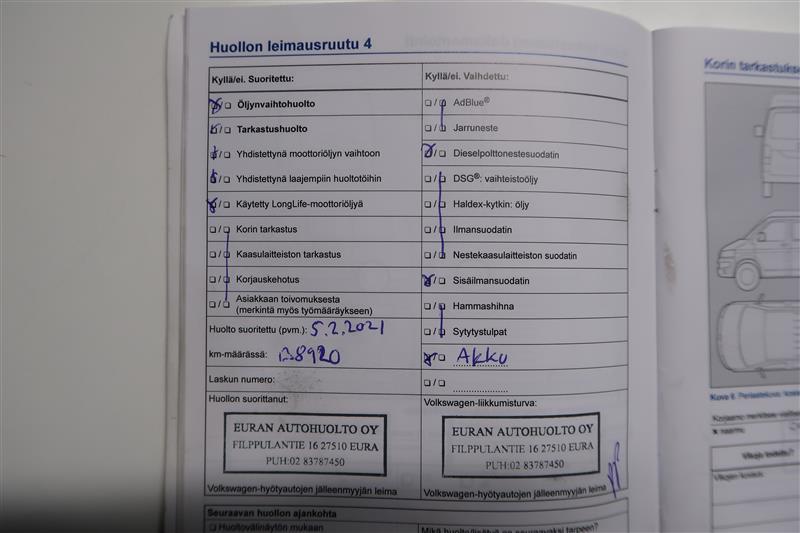 Huollon leimausruutu 4
Kyllä/ei. Suoritettu:
Öljynvaihtohuolto
Tarkastushuolto
Yhdistettynä moottoriöljyn vaihtoon
Yhdistettynä laajempiin huoltotöihin
Käytetty LongLife-moottoriöljyä
Korin tarkastus
Kaasulaitteiston tarkastus
Korjauskehotus
Asiakkaan toivomuksesta
(merkintä myös työmääräykseen)
Huolto suoritettu (pvm.): 5.2.2021
km-määrässä:
Laskun numero:
Huollon suorittanut:
EURAN AUTOHUOLTO OY
FILPPULANTIE 16 27510 EURA
PUH:02 83787450
Volkswagen-hyötyautojen jälleenmyyjän leima
Kyllä/ei. Vaihdettu:
AdBlue®
Jarruneste
Dieselpolttonestesuodatin
DSG®: vaihteistoöljy
Haldex-kytkin: öljy
Ilmansuodatin
Nestekaasulaitteiston suodatin
Sisäilmansuodatin
Hammashihna
Sytytystulpat
Akku
Volkswagen-liikkumisturva:
EURAN AUTOHUOLTO OY
FILPPULANTIE 16 27510 EURA
PUH:02 83787450
Volkswagen-hyötyautojen jälleenmyyjän leima
Seuraavan huollon ajankohta
Huoltovälinäytön mukaan
Korin tarkastukse